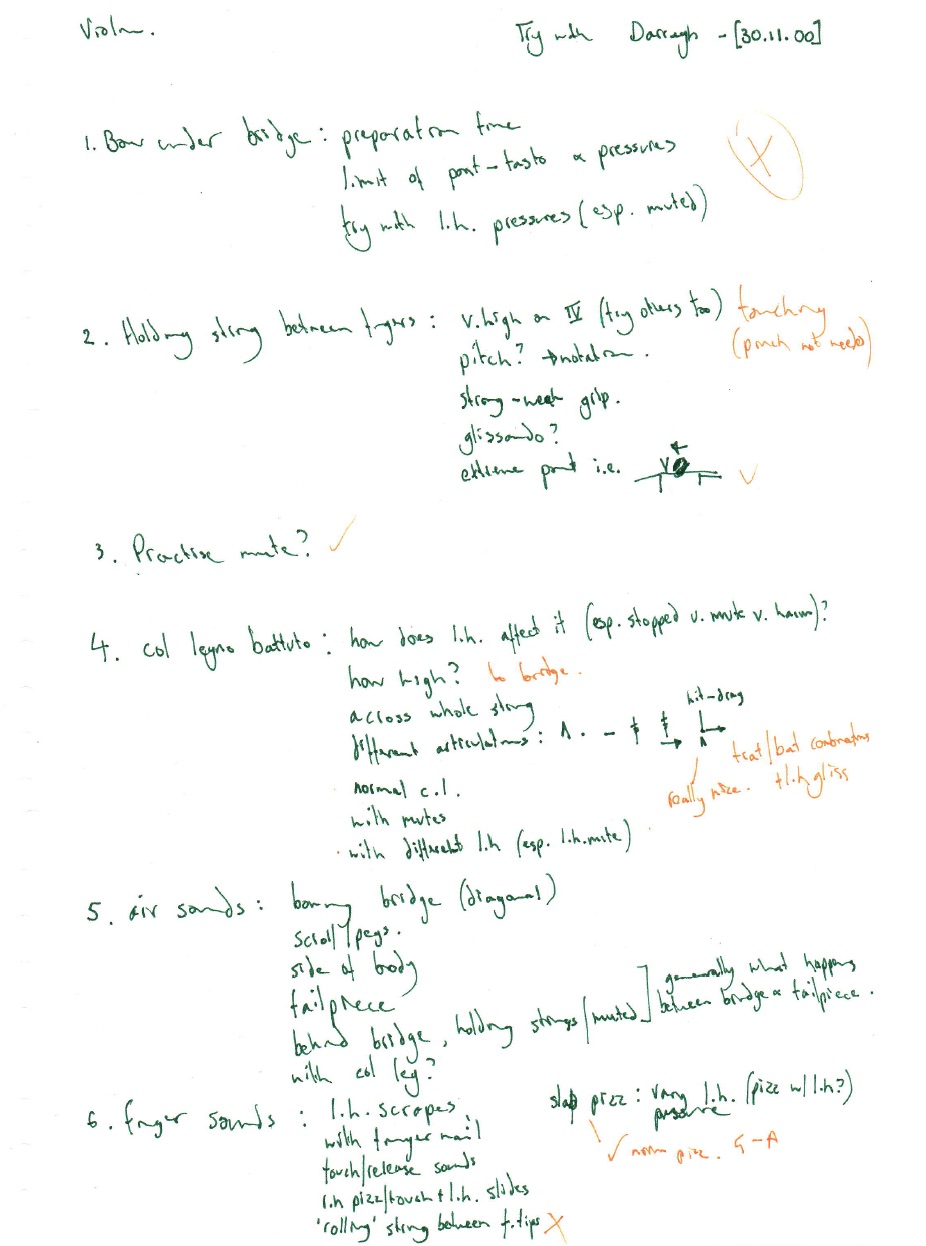 Violin. Try with Darragh - [30.11.00]
1. Bow under bridge : preparation time
limit of pont-tasto & pressures X
try with l.h. pressures (esp. muted)
2. Holding string between fingers : v.high on IV (try others too) touching
pitch? → notation. (pinch not needed)
strong-weak grip.
glissando?
extreme pont i.e. V ✓
3. Practise mute? ✓
4. col legno battuto : how does l.h. affect it (esp. stopped v. mute v. harm)?
how high? to bridge.
across whole string hit-drag
different articulations : Λ . – trat/bat combinations
normal c.l. really nice. + l.h gliss
with mutes
with different l.h (esp. l.h. mute)
5. air sounds : bowing bridge (diagonal)
scroll/pegs.
side of body
tailpiece generally what happens
behind bridge, holding strings/muted] between bridge & tailpiece.
with col leg?
6. finger sounds : l.h. scrapes, slap pizz : vary l.h. (pizz w/ l.h?)
with finger nail pressure
touch/release sounds ✓ norm pizz. G-A
l.h pizz/touch + l.h. slides
'rolling' string between f.tips X